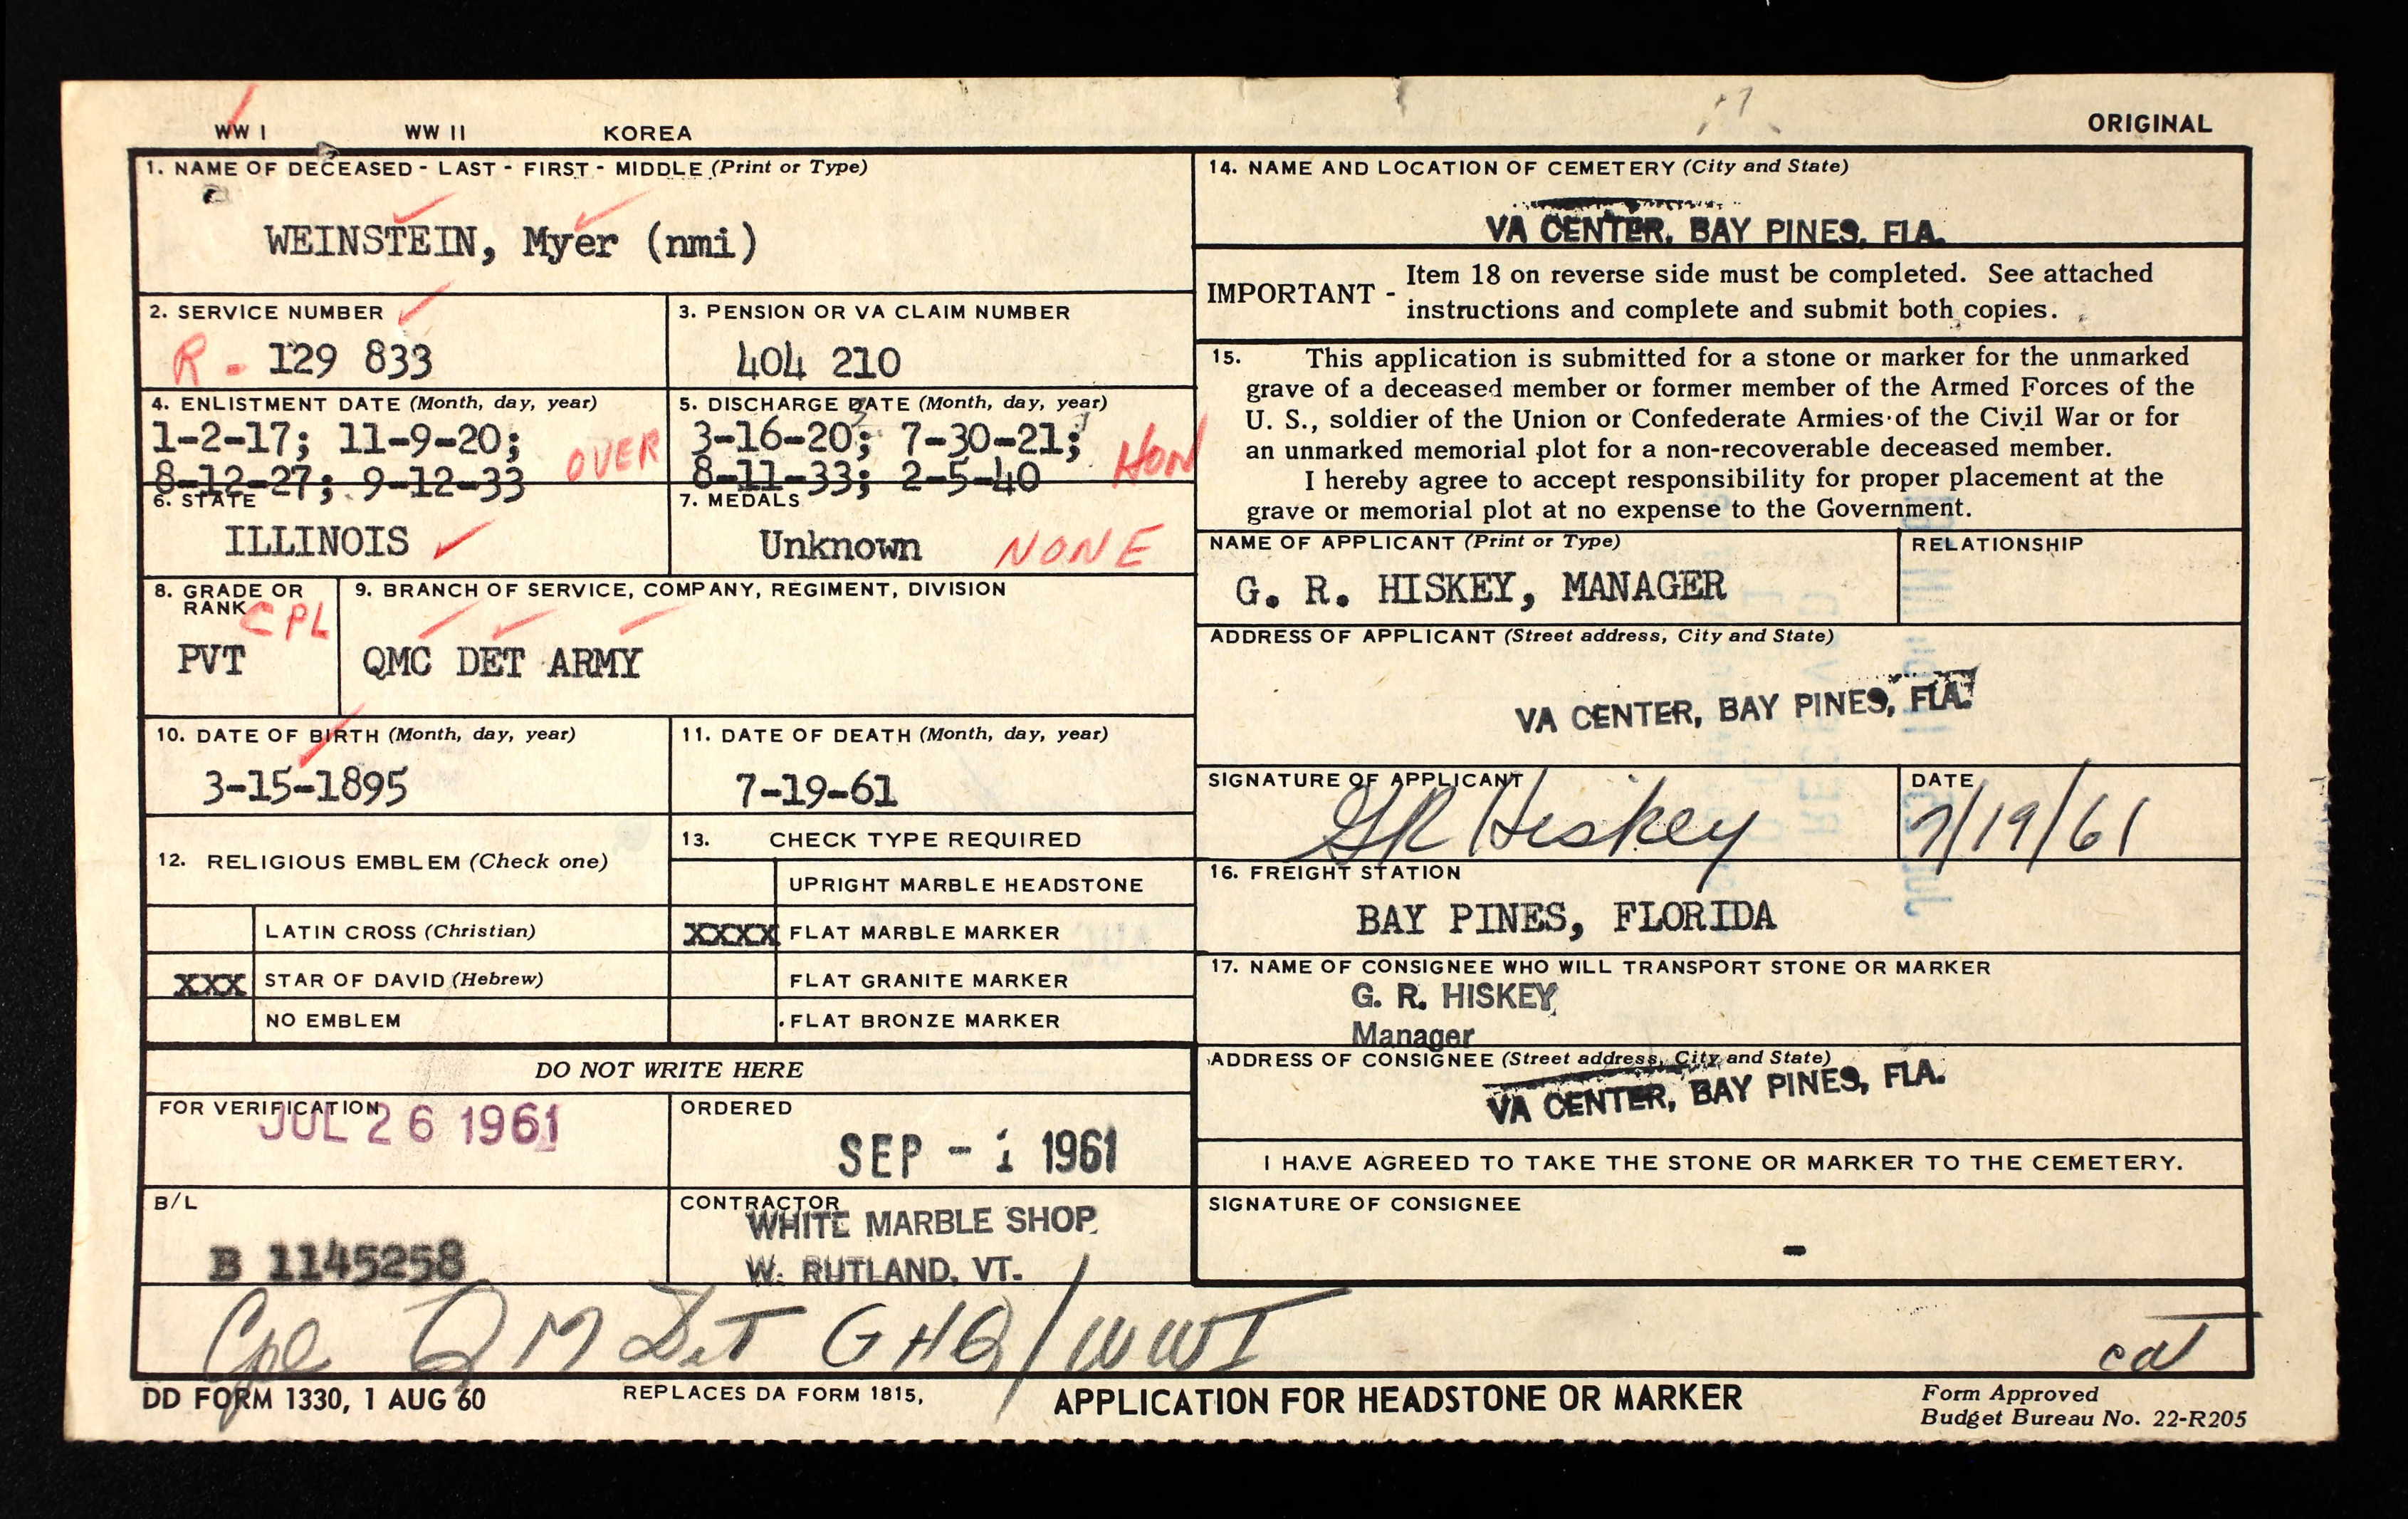 WW I WW II KOREA ORIGINAL
1. NAME OF DECEASED - LAST - FIRST - MIDDLE (Print or Type)
WEINSTEIN, Myer (nmi)
2. SERVICE NUMBER
R - 129 833
3. PENSION OR VA CLAIM NUMBER
404 210
4. ENLISTMENT DATE (Month, day, year)
1-2-17; 11-9-20;
8-12-27; 9-12-33
OVER
5. DISCHARGE DATE (Month, day, year)
3-16-20; 7-30-21;
8-11-33; 2-5-40
HON
6. STATE
ILLINOIS
7. MEDALS
Unknown NONE
8. GRADE OR
RANK CPL
PVT
9. BRANCH OF SERVICE, COMPANY, REGIMENT, DIVISION
QMC DET ARMY
10. DATE OF BIRTH (Month, day, year)
3-15-1895
11. DATE OF DEATH (Month, day, year)
7-19-61
12. RELIGIOUS EMBLEM (Check one)
LATIN CROSS (Christian)
XXX STAR OF DAVID (Hebrew)
NO EMBLEM
13. CHECK TYPE REQUIRED
UPRIGHT MARBLE HEADSTONE
XXXX FLAT MARBLE MARKER
FLAT GRANITE MARKER
FLAT BRONZE MARKER
DO NOT WRITE HERE
FOR VERIFICATION
JUL 26 1961
ORDERED
SEP - 1 1961
B/L
B 1145258
CONTRACTOR
WHITE MARBLE SHOP
W. RUTLAND, VT.
14. NAME AND LOCATION OF CEMETERY (City and State)
VA CENTER, BAY PINES, FLA.
IMPORTANT - Item 18 on reverse side must be completed. See attached
instructions and complete and submit both copies.
15. This application is submitted for a stone or marker for the unmarked
grave of a deceased member or former member of the Armed Forces of the
U. S., soldier of the Union or Confederate Armies of the Civil War or for
an unmarked memorial plot for a non-recoverable deceased member.
I hereby agree to accept responsibility for proper placement at the
grave or memorial plot at no expense to the Government.
NAME OF APPLICANT (Print or Type)
G. R. HISKEY, MANAGER
RELATIONSHIP
ADDRESS OF APPLICANT (Street address, City and State)
VA CENTER, BAY PINES, FLA.
SIGNATURE OF APPLICANT
GR Hiskey
DATE
7/19/61
16. FREIGHT STATION
BAY PINES, FLORIDA
17. NAME OF CONSIGNEE WHO WILL TRANSPORT STONE OR MARKER
G. R. HISKEY
Manager
ADDRESS OF CONSIGNEE (Street address, City and State)
VA CENTER, BAY PINES, FLA.
I HAVE AGREED TO TAKE THE STONE OR MARKER TO THE CEMETERY.
SIGNATURE OF CONSIGNEE
-
Cpl QM Det GHQ/WWI
DD FORM 1330, 1 AUG 60 REPLACES DA FORM 1815, APPLICATION FOR HEADSTONE OR MARKER
Form Approved
Budget Bureau No. 22-R205